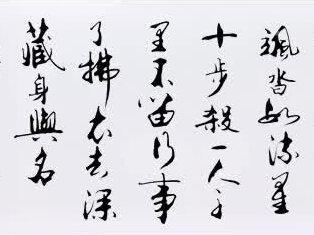 颯沓如流星
十步殺一人千
里不留行事
了拂衣去深
藏身與名